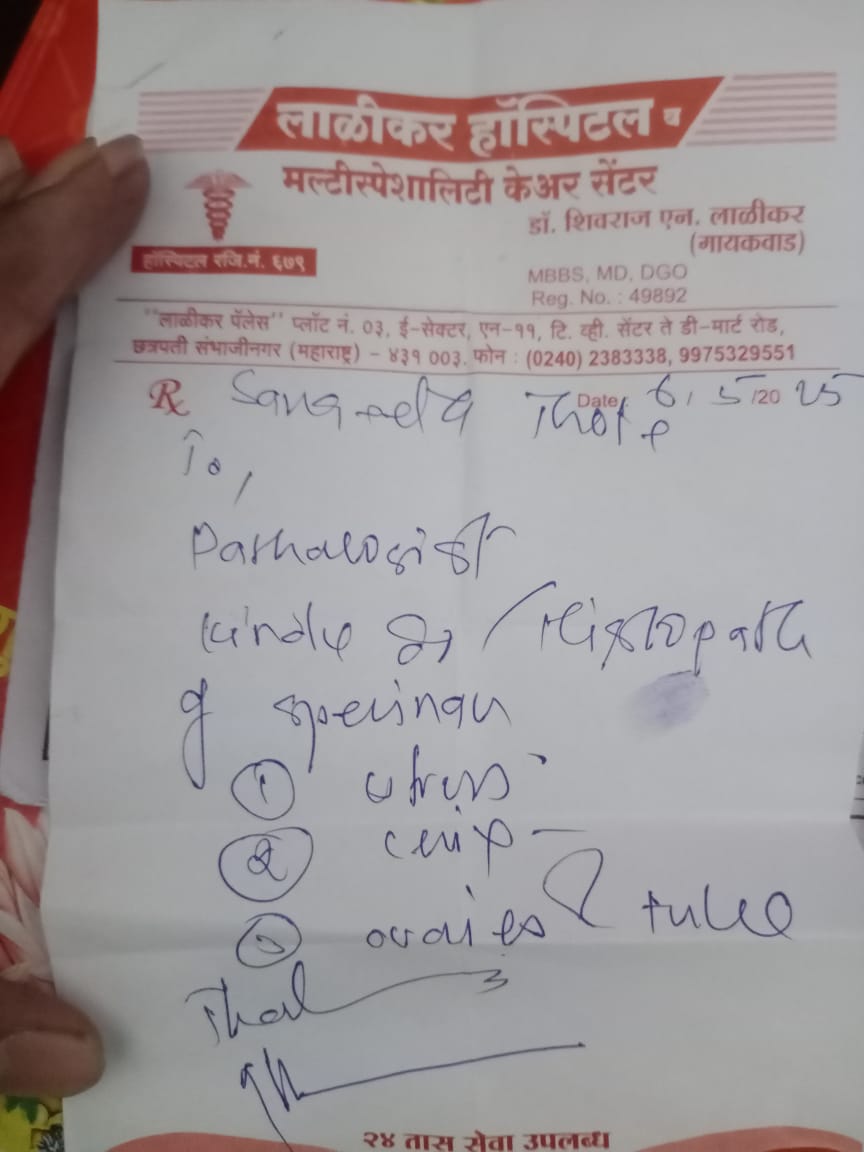 लाळीकर हॉस्पिटल व
मल्टीस्पेशालिटी केअर सेंटर
डॉ. शिवराज एन. लाळीकर
(गायकवाड)
हॉस्पिटल रजि.नं. ६७९
MBBS, MD, DGO
Reg. No. : 49892
"लाळीकर पॅलेस" प्लॉट नं. ०३, ई-सेक्टर, एन-११, टि. व्ही. सेंटर ते डी-मार्ट रोड,
छत्रपती संभाजीनगर (महाराष्ट्र) - ४३१ ००३. फोन : (0240) 2383338, 9975329551
Rx Sangeeta Thote Date 6/5/2025
To,
Pathologist
Kindly do Histopath
of specimen
① utrus
② cervix
③ ovaries & tube
Thank
२४ तास सेवा उपलब्ध